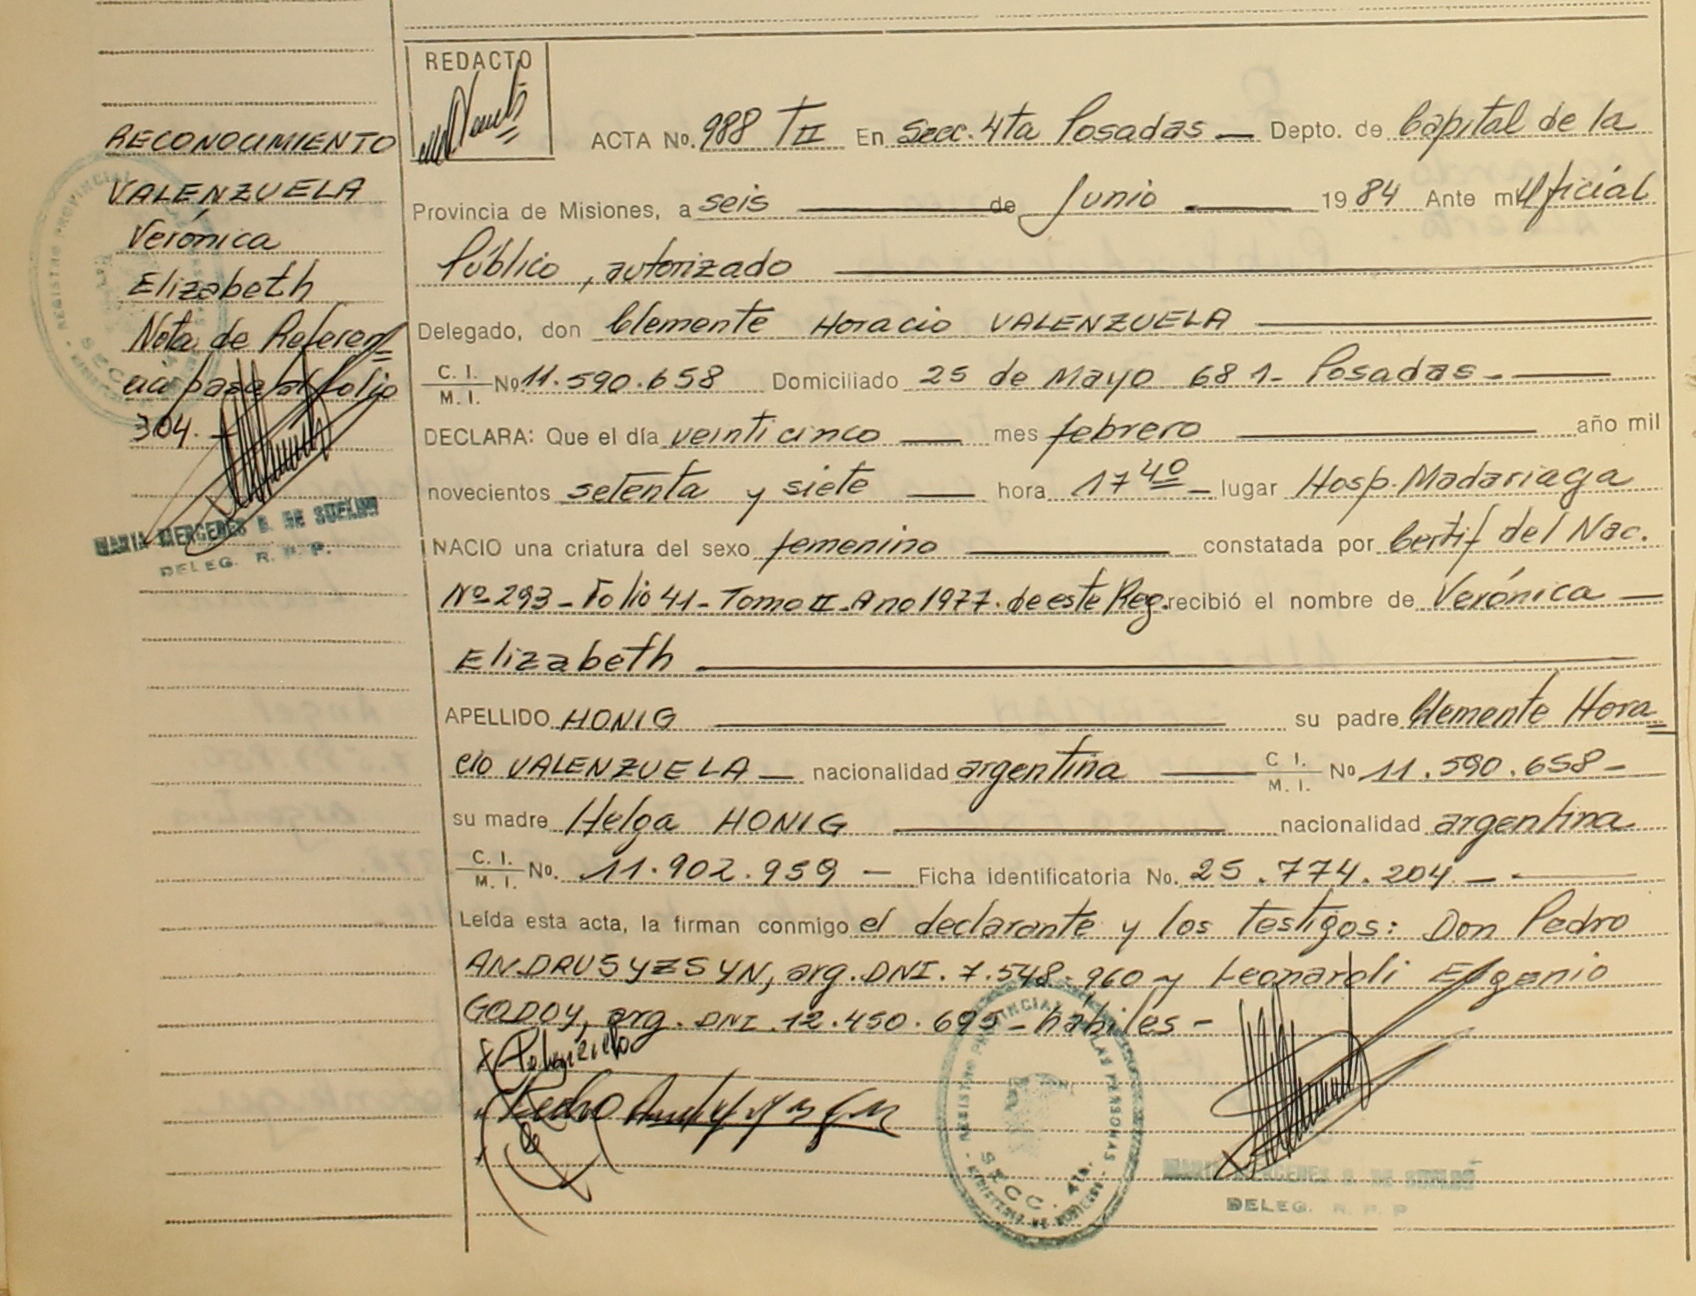 RECONOCIMIENTO
VALENZUELA
Verónica
Elizabeth
Nota de Referen=
cia pasa al folio
304.
MARIA MERCEDES B. DE SUELDO
DELEG. R. P. P.
REDACTO
ACTA No. 988 TII En Secc. 4ta Posadas — Depto. de Capital de la
Provincia de Misiones, a seis — de Junio — 1984 Ante mi Oficial
Público, autorizado —
Delegado, don Clemente Horacio VALENZUELA —
C. I. / M. I. No 11.590.658 Domiciliado 25 de Mayo 681- Posadas- —
DECLARA: Que el día veinticinco — mes febrero — año mil
novecientos setenta y siete — hora 17 40 — lugar Hosp. Madariaga
NACIO una criatura del sexo femenino — constatada por Certif del Nac.
Nº 293 - Folio 41 - Tomo II - Ano 1977. de este Reg. recibió el nombre de Verónica —
Elizabeth —
APELLIDO HONIG — su padre Clemente Hora=
cio VALENZUELA — nacionalidad argentina — C. I. / M. I. No 11.590.658-
su madre Helga HONIG — nacionalidad argentina
C. I. / M. I. No. 11.902.959 — Ficha identificatoria No. 25.774.204 — —
Leída esta acta, la firman conmigo el declarante y los testigos: Don Pedro
ANDRUSYZSYN, arg. DNI. 7.548.960 y Leonardi Eugenio
GODOY, arg. DNI. 12.450.695 - hábiles -
REGISTRO PROVINCIAL DE LAS PERSONAS
SECC. 4ta.
MARIA MERCEDES B. DE SUELDO
DELEG. R. P. P